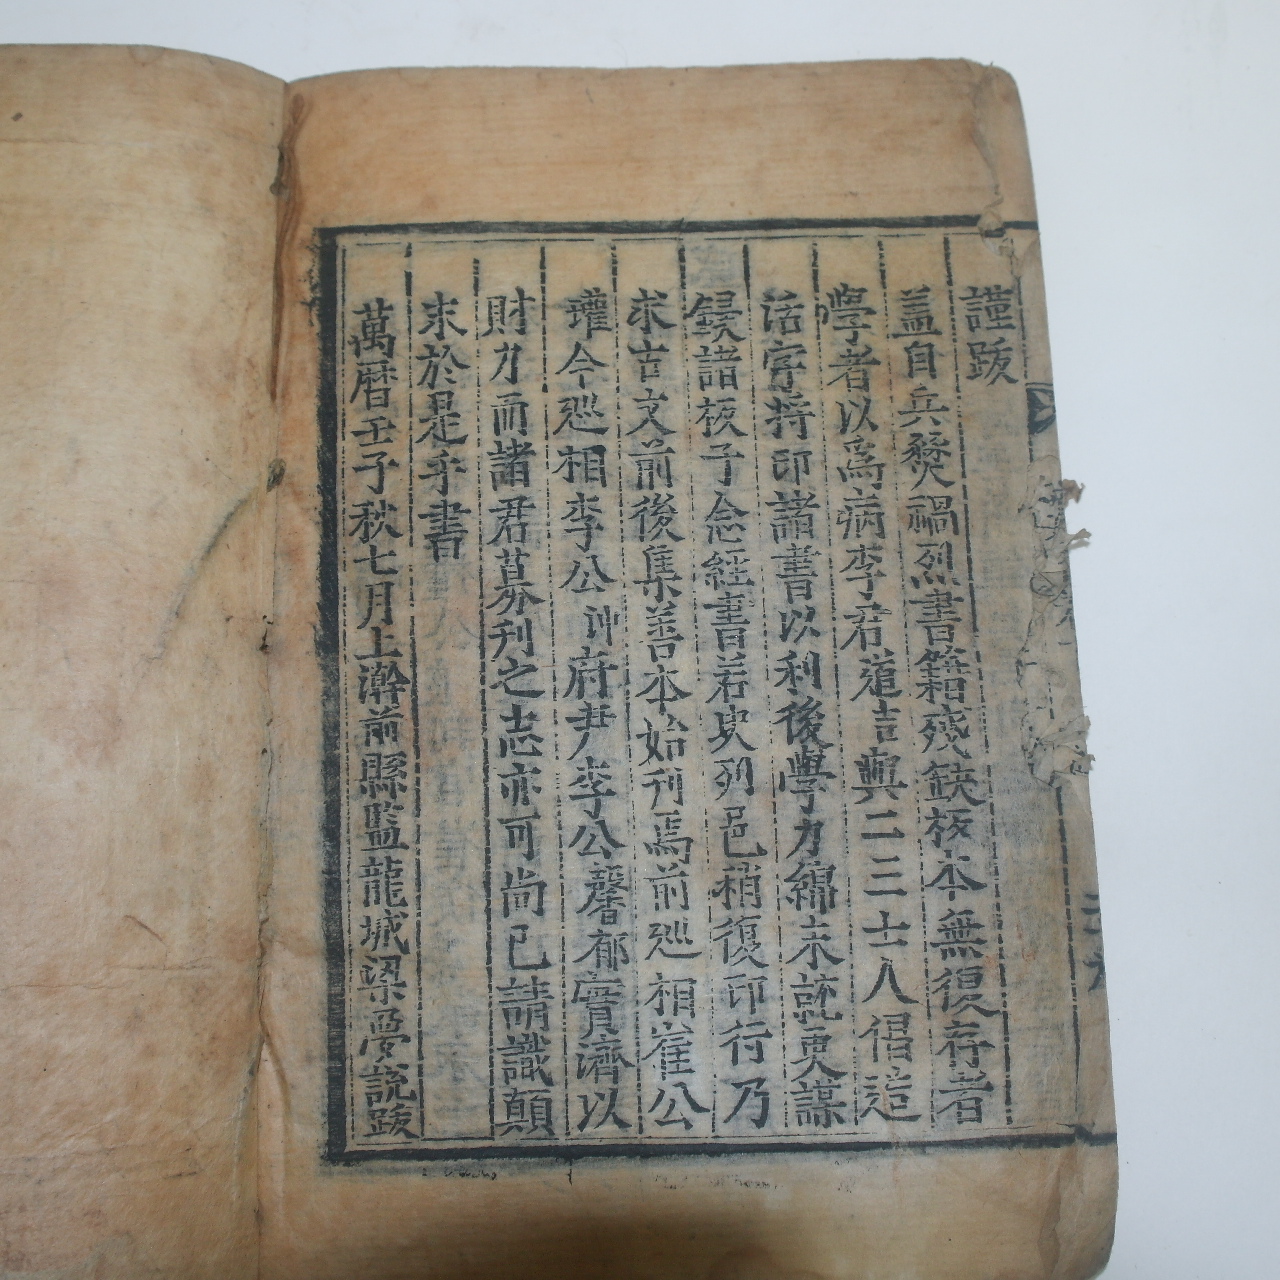 謹跋
盖自兵燹禍烈書籍殘缺板本無復存者
學者以爲病李君道吉與二三士人倡造
活字將印諸書以利後學力綿未就更謀
鋟諸板子念經書若史列邑稍復印行乃
求古文前後集善本始刊焉前巡相崔公
瓘今巡相李公冲府尹李公馨郁實濟以
財力而諸君募刊之志亦可尚已請識顛
末於是乎書
萬曆壬子秋七月上澣前縣監龍城梁夢說跋